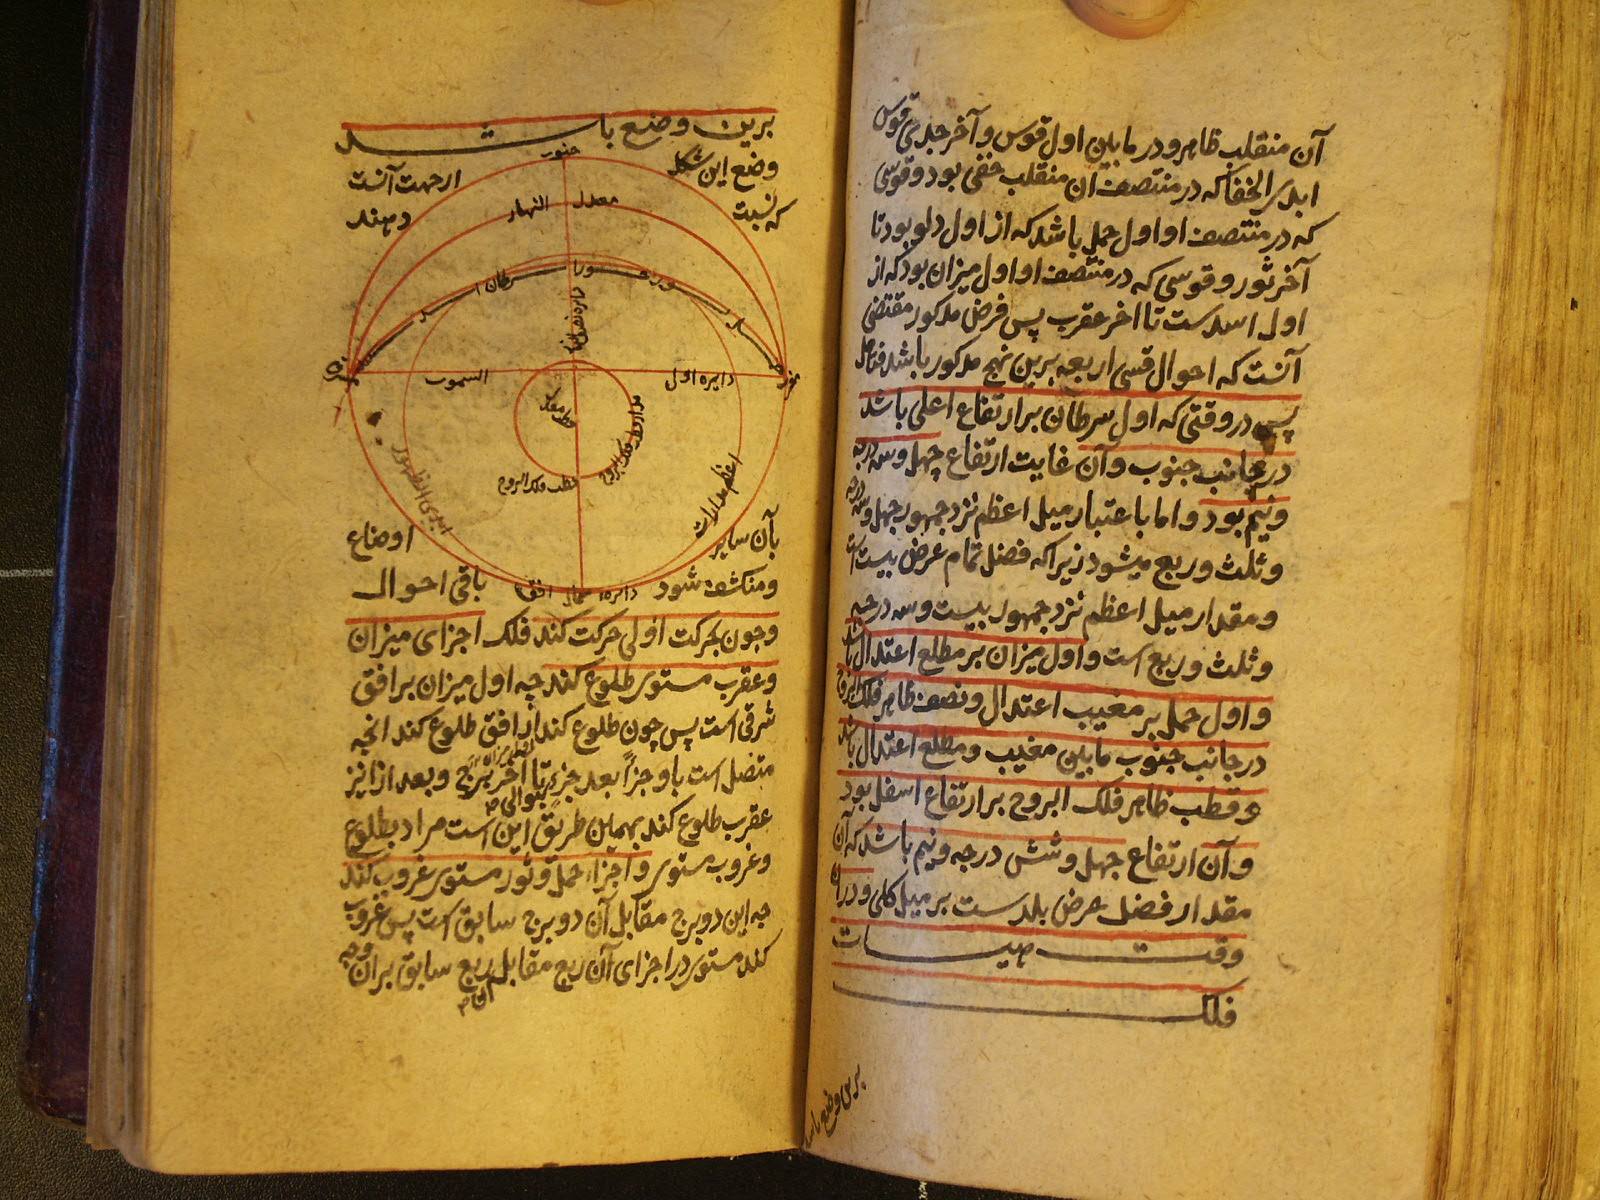 آن منقلب ظاهر و در مابین اول قوس و آخر جدی قوس
ابدی الخفا که در منتصف ان منقلب خفی بود و قوسی
که در منتصف او اول حمل باشد که از اول دلو بود تا
آخر ثور و قوسی که در منتصف او اول میزان بود که از
اول اسد ست تا اخر عقرب پس فرض مذکور مقتضی
آنست که احوال قسی اربعه برین نهج مذکور باشد فتامل
پس در وقتی که اول سرطان بر ارتفاع اعلی باشد
در جانب جنوب و آن غایت ارتفاع چهل و سه درجه
و نیم بود و اما باعتبار میل اعظم نزد جمهور چهل و سه درجه
و ثلث و ربع میشود زیرا که فضل تمام عرض بیست است
و مقدار میل اعظم نزد جمهور بیست و سه درجه
و ثلث و ربع است و اول میزان بر مطلع اعتدال باشد
و اول حمل بر مغیب اعتدال و نصف ظاهر فلک البروج
در جانب جنوب مابین مغیب و مطلع اعتدال باشد
و قطب ظاهر فلک البروج بر ارتفاع اسفل بود
و آن ارتفاع چهل و شش درجه و نیم باشد که آن
مقدار فضل عرض بلدست بر میل کلی و درین
وقت هیات
فلک
برین وضع باشد
برین وضع باشد
وضع این شکل از جهت آنست
که نسبت دهند
جنوب
معدل النهار
سرطان
جوزا
ثور
اسد
دائره نصف النهار
دایره اول السموت
قطب معدل
مدار قطب فلک البروج
قطب فلک البروج
اعظم مدارات
ابدی الظهور
دائره افق
شمال
بآن سایر اوضاع
و منکشف شود باقی احوال
و چون بحرکت اولی حرکت کند فلک اجزای میزان
و عقرب مستوی طلوع کند چه اول میزان بر افق
شرقی است پس چون طلوع کند از افق طلوع کند انچه
متصل است باو جزاً بعد جزءٍ تا آخر برج و بعد ازان نیز
بتوالی
عقرب طلوع کند بهمین طریق این است مراد بطلوع
و غروب مستوی و اجزاء حمل و ثور مستوی غروب کند
چه این دو برج مقابل آن دو برج سابق است پس غروب
کند مستوی در اجزای آن ربع مقابل ربع سابق بران وجه